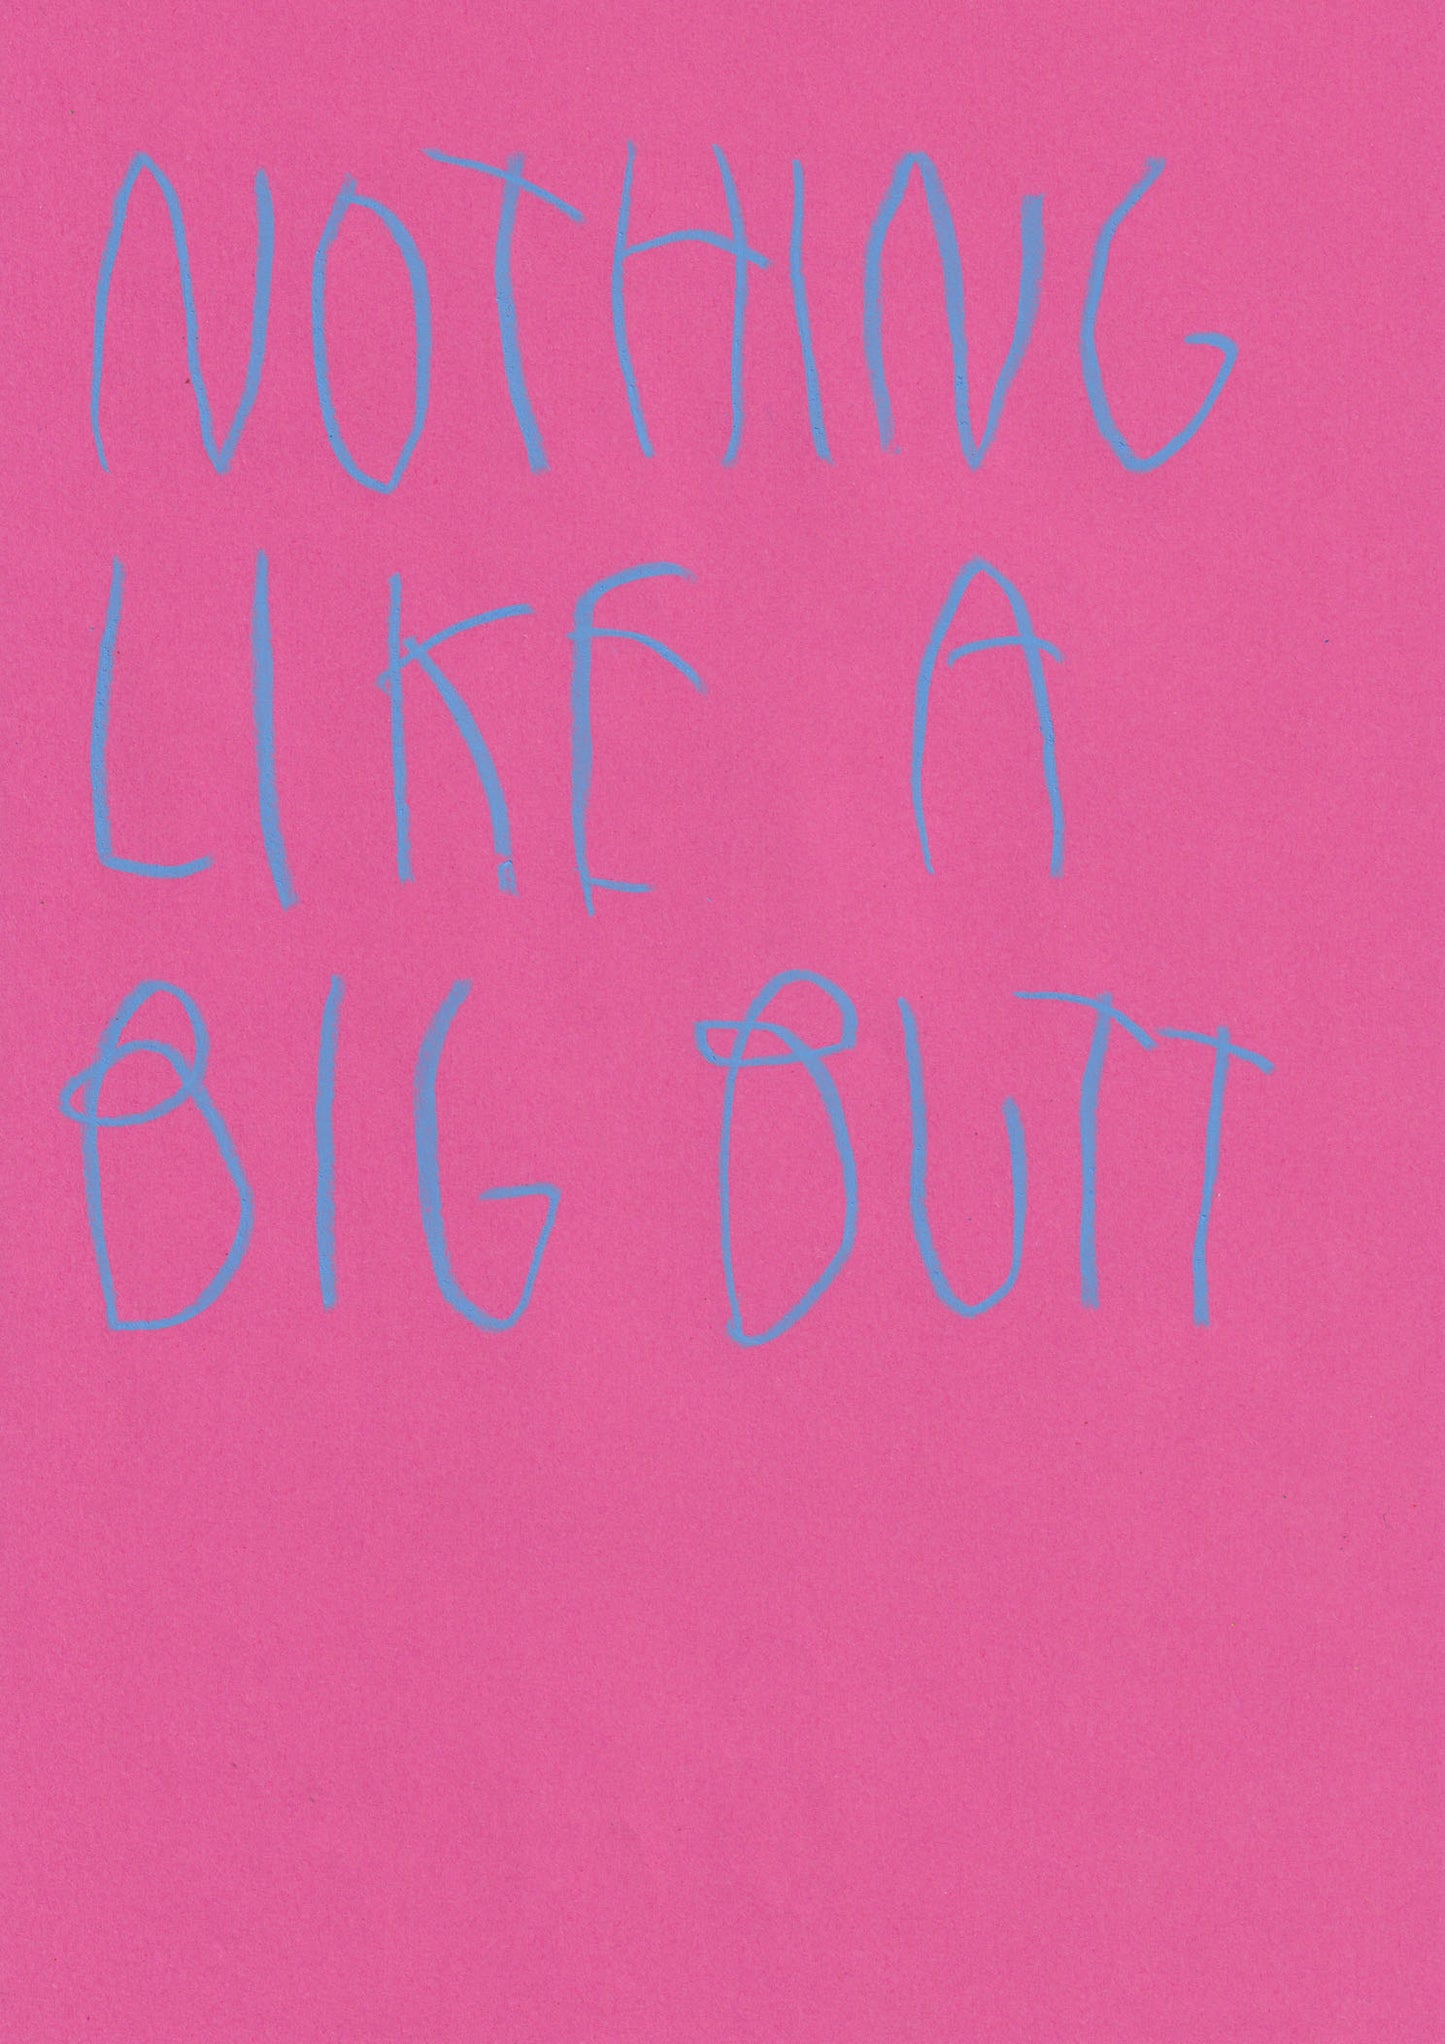 NOTHING
LIKE A
BIG BUTT